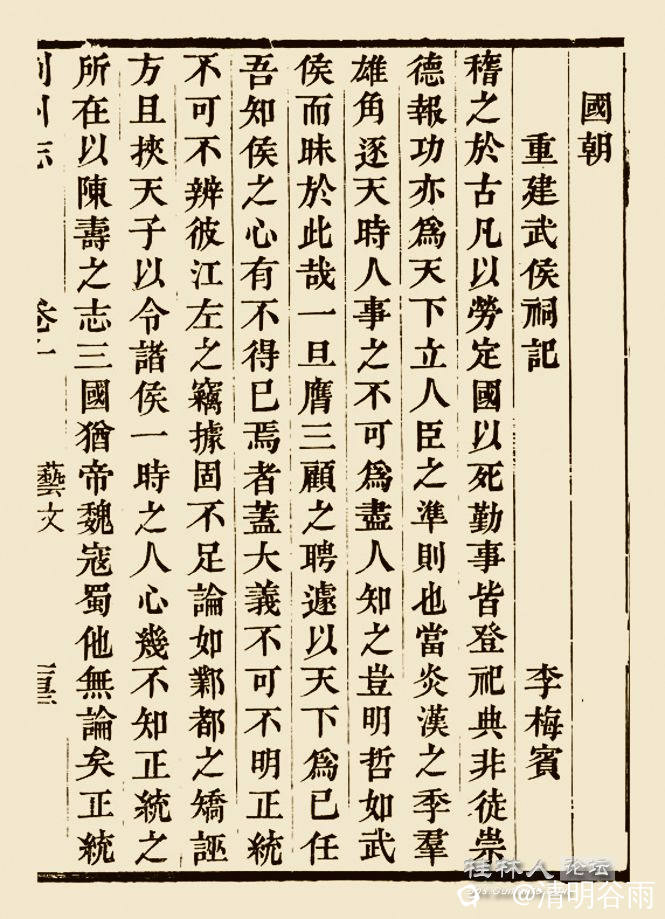 國朝
重建武侯祠記 李梅賓
稽之於古凡以勞定國以死勤事皆登祀典非徒崇
德報功亦為天下立人臣之準則也當炎漢之季羣
雄角逐天時人事之不可為盡人知之豈明哲如武
侯而昧於此哉一旦膺三顧之聘遽以天下為已任
吾知侯之心有不得已焉者蓋大義不可不明正統
不可不辨彼江左之竊據固不足論如鄴都之矯誣
方且挾天子以令諸侯一時之人心幾不知正統之
所在以陳壽之志三國猶帝魏寇蜀他無論矣正統
藝文
桂林人论坛
@清明谷雨